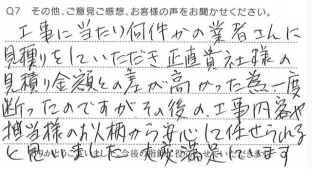 Q7 その他、ご意見ご感想、お客様の声をお聞かせください。
工事に当たり何件かの業者さんに
見積りをしていただき正直貴社様の
見積り金額との差が高かった為一度
断ったのですがその後の、工事内容や
担当様のお人柄から安心して任せられる
と思いました 大変満足してます